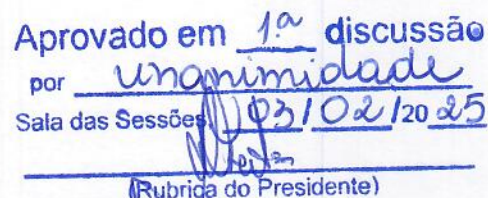 Aprovado em 1.ª discussão
por unanimidade
Sala das Sessões 03/02/2025
(Rubrica do Presidente)